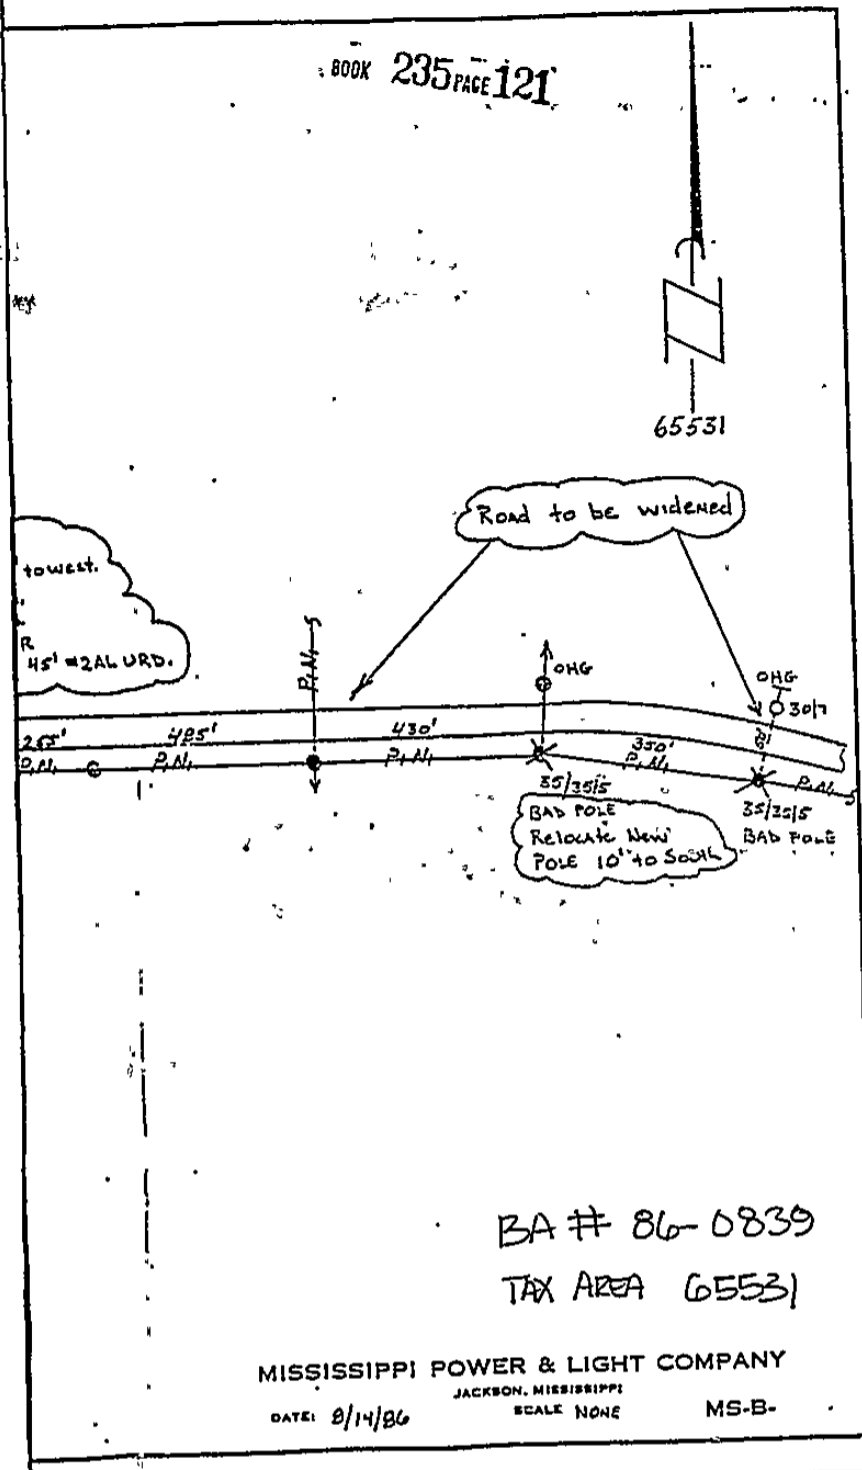 BOOK 235 PAGE 121
65531
Road to be widened
to west.
R
45' #2AL URD.
P,N,-5
OHG
OHG
30/7
255'
485'
430'
350'
P,N,
P,N,
P,N,
P,N,
P,N,-5
35/35/5
BAD POLE
Relocate New
POLE 10' to South
35/35/5
BAD POLE
BA # 86-0839
TAX AREA 65531
MISSISSIPPI POWER & LIGHT COMPANY
JACKSON, MISSISSIPPI
DATE: 8/14/86 SCALE NONE MS-B-